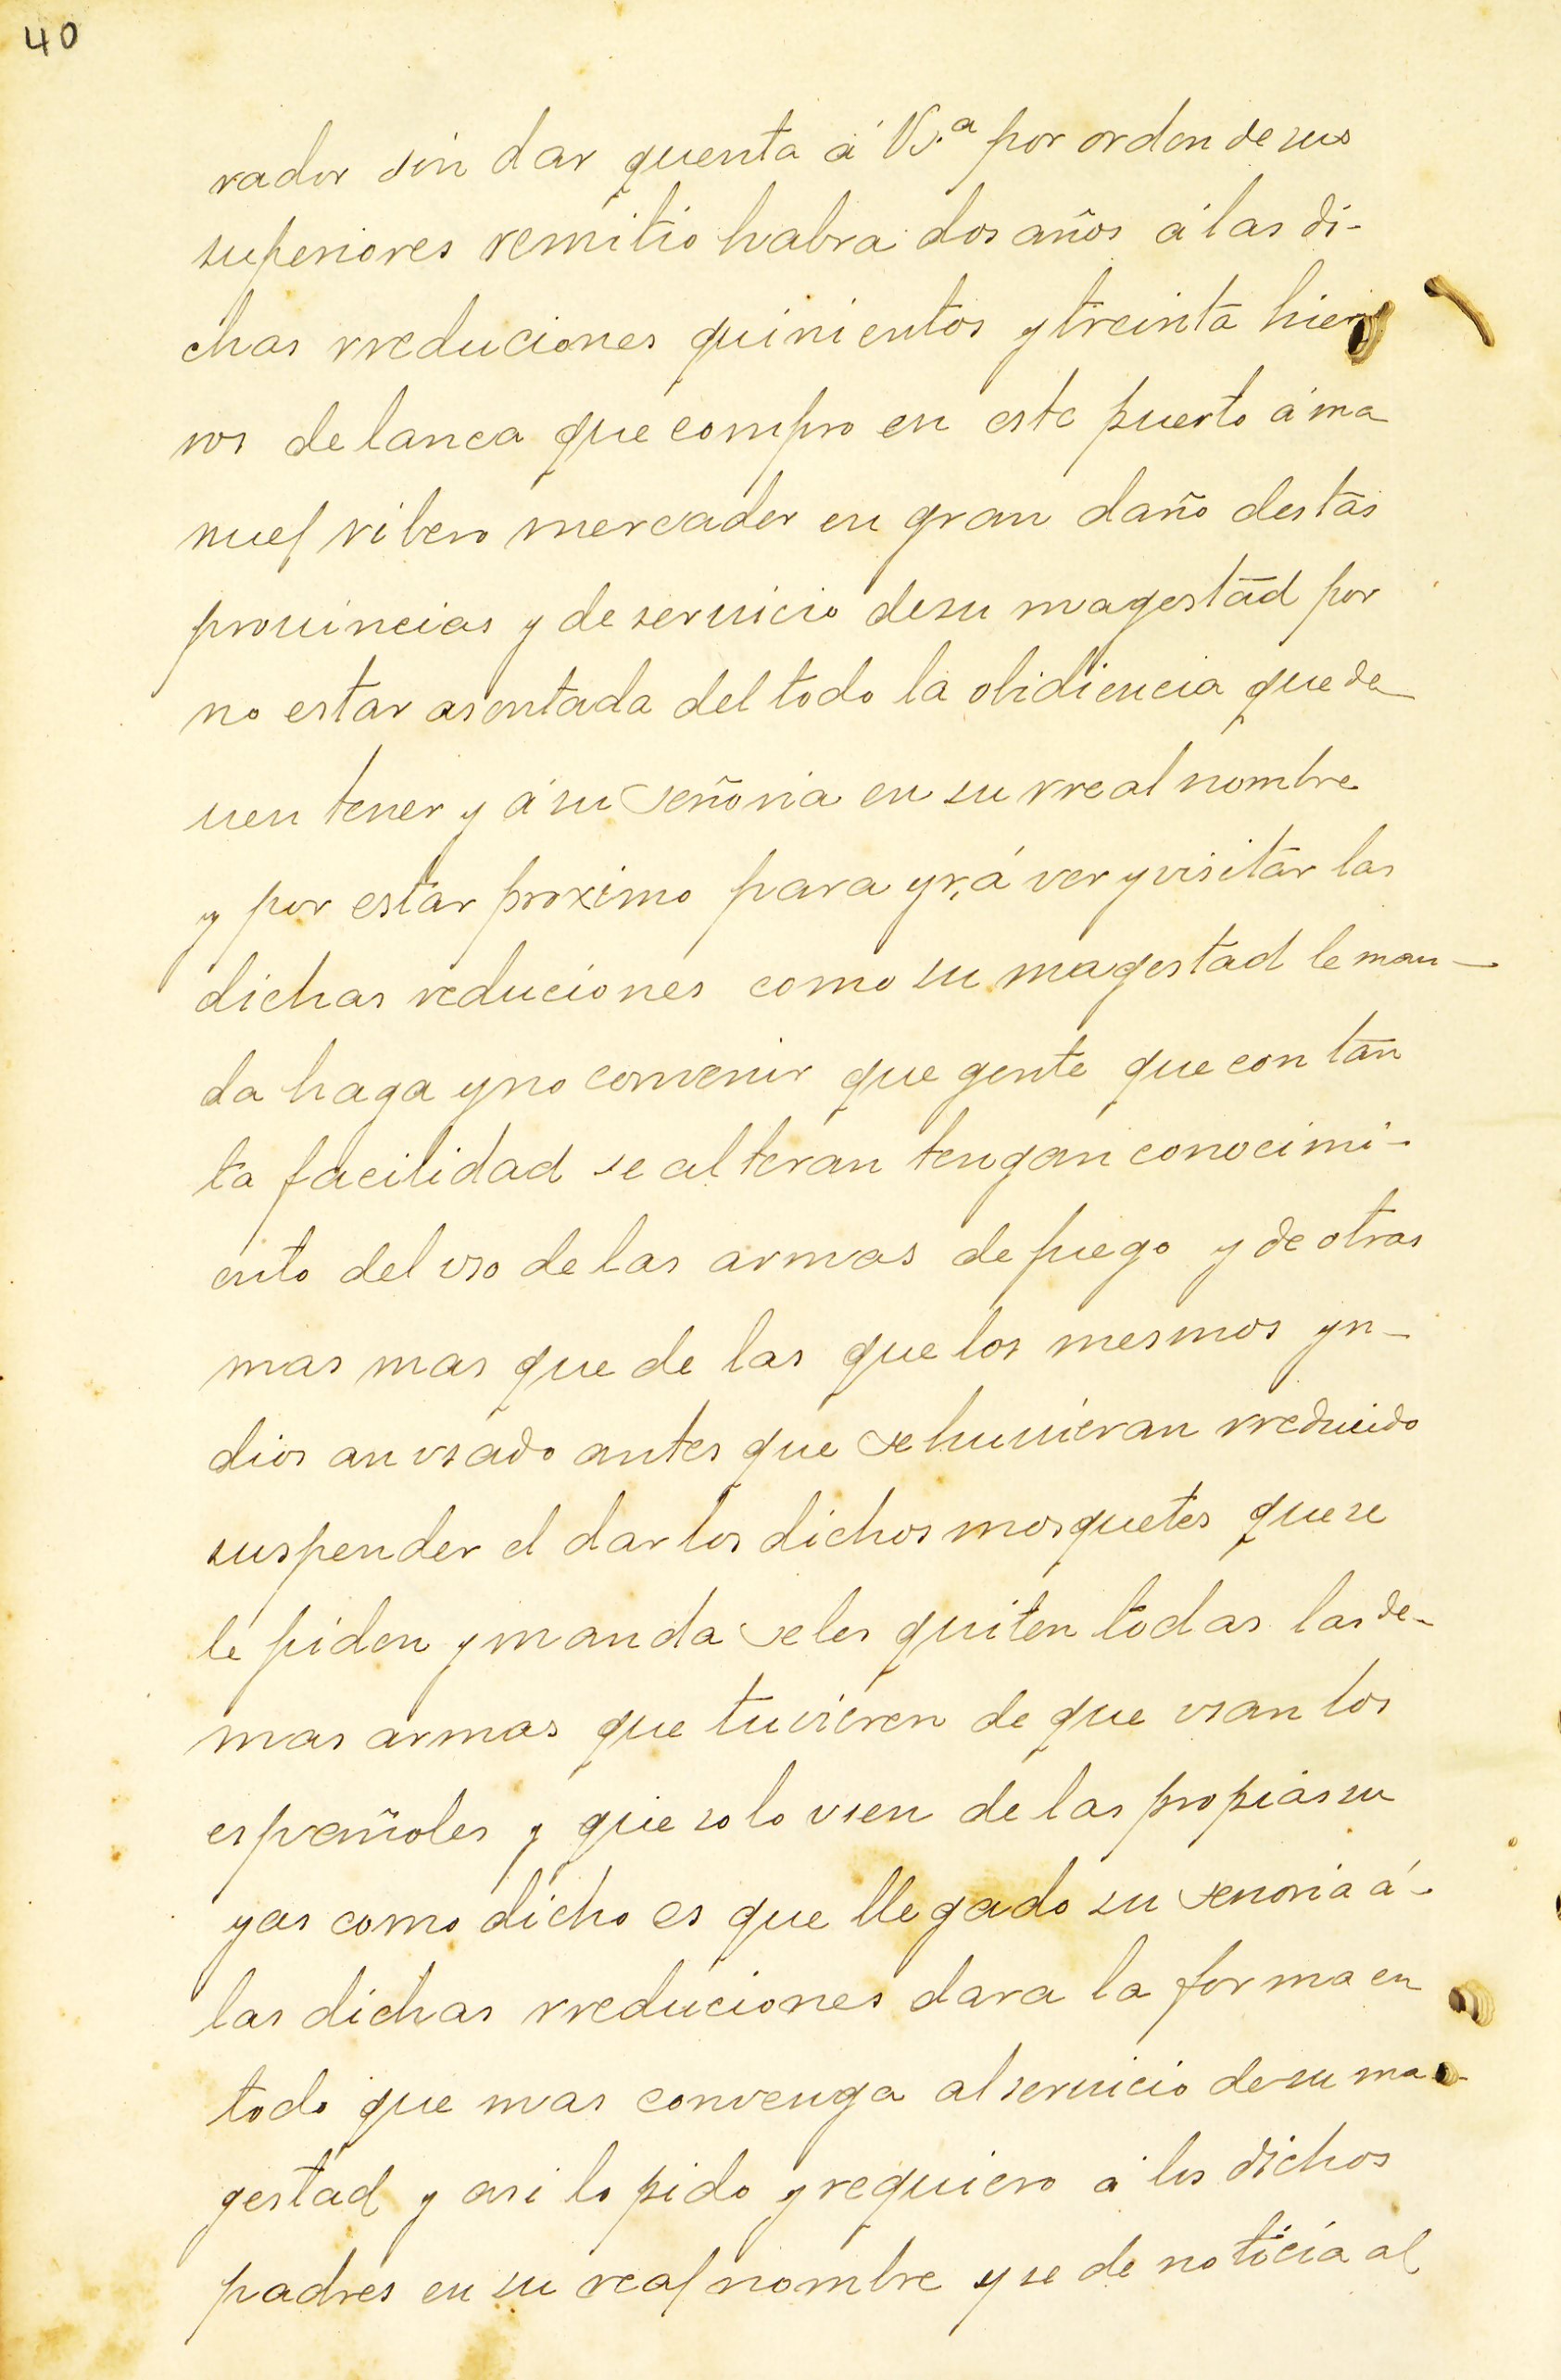 40
rador sin dar quenta á VS.ª por orden de sus
superiores remitio habra dos años á las di-
chas rreduciones quinientos y treinta hier
ros de lanca que compro en este puerto á ma
nuel ribero mercader en gran daño destas
prouincias y de seruicio de su magestad por
no estar asentada del todo la obidiencia que de
uen tener y á su señoria en su rreal nombre
y por estar proximo para yr, á ver y visitar las
dichas reduciones como su magestad le man-
da haga y no convenir que gente que con tan
ta facilidad se alteran tengan conocimi-
ento del vso de las armas de fuego y de otras
mas mas que de las que los mesmos yn-
dios an vsado antes que se huuieran rreducido
suspender el dar los dichos mosquetes que se
le piden y manda se les quiten todas las de-
mas armas que tuvieren de que vsan los
españoles y que solo vsen de las propias su
yas como dicho es que llegado su senoria á-
las dichas rreduciones dara la forma en
todo que mas convenga al seruicio de su ma-
gestad y asi lo pido y requiero á los dichos
padres en su real nombre y se de noticia al